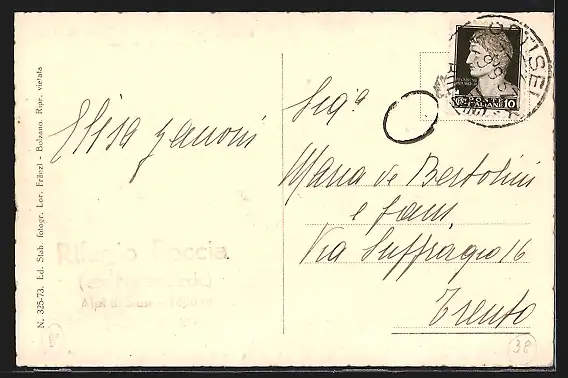 N. 325-73. Ed. Stab. fotogr. Lor. Fränzl - Bolzano. Ripr. vietata
Elisa Zanoni
Rifugio Roccia
Alpi di Siusi
ORTISEI
POSTE
ITALIANE
10
Sig.a
Maria de Bertolini
e fam
Via Suffragio 16
Trento
38